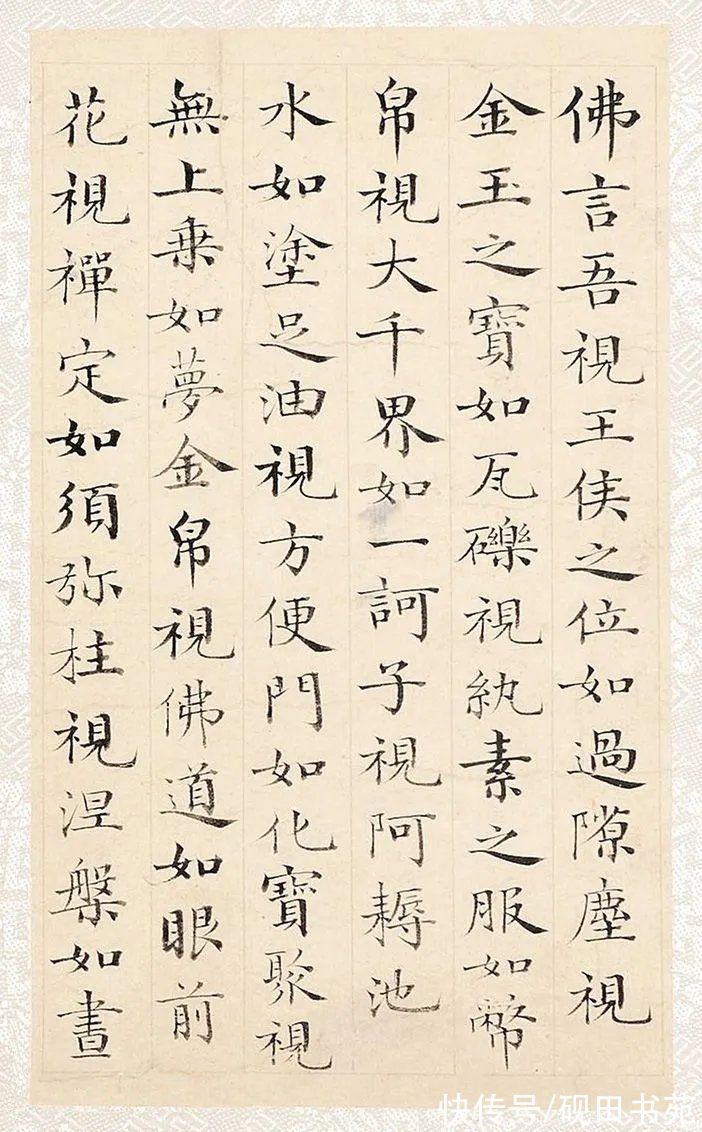 佛言吾視王侯之位如過隙塵視
金玉之寶如瓦礫視紈素之服如幣
帛視大千界如一訶子視阿耨池
水如塗足油視方便門如化寶聚視
無上乗如夢金帛視佛道如眼前
花視禪定如須弥柱視涅槃如晝
快传号/砚田书苑